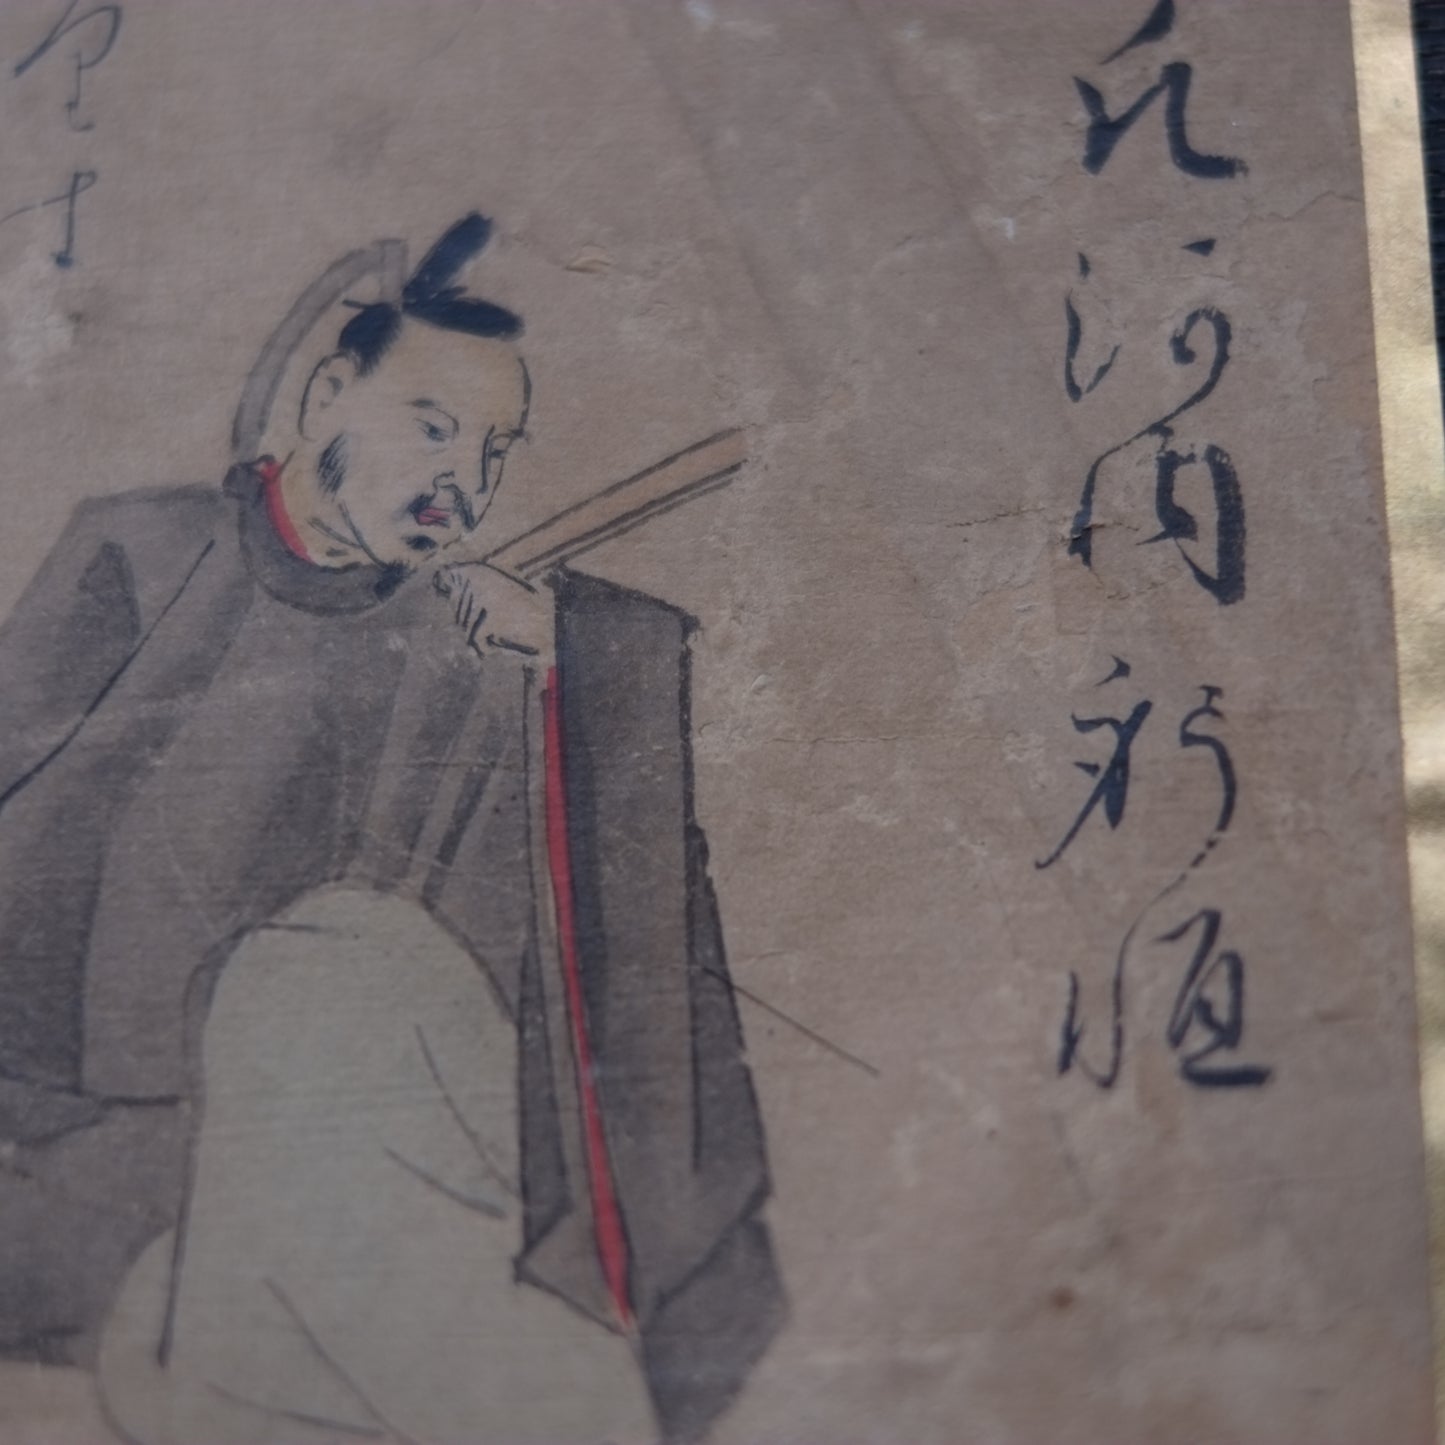 凡河内躬恒